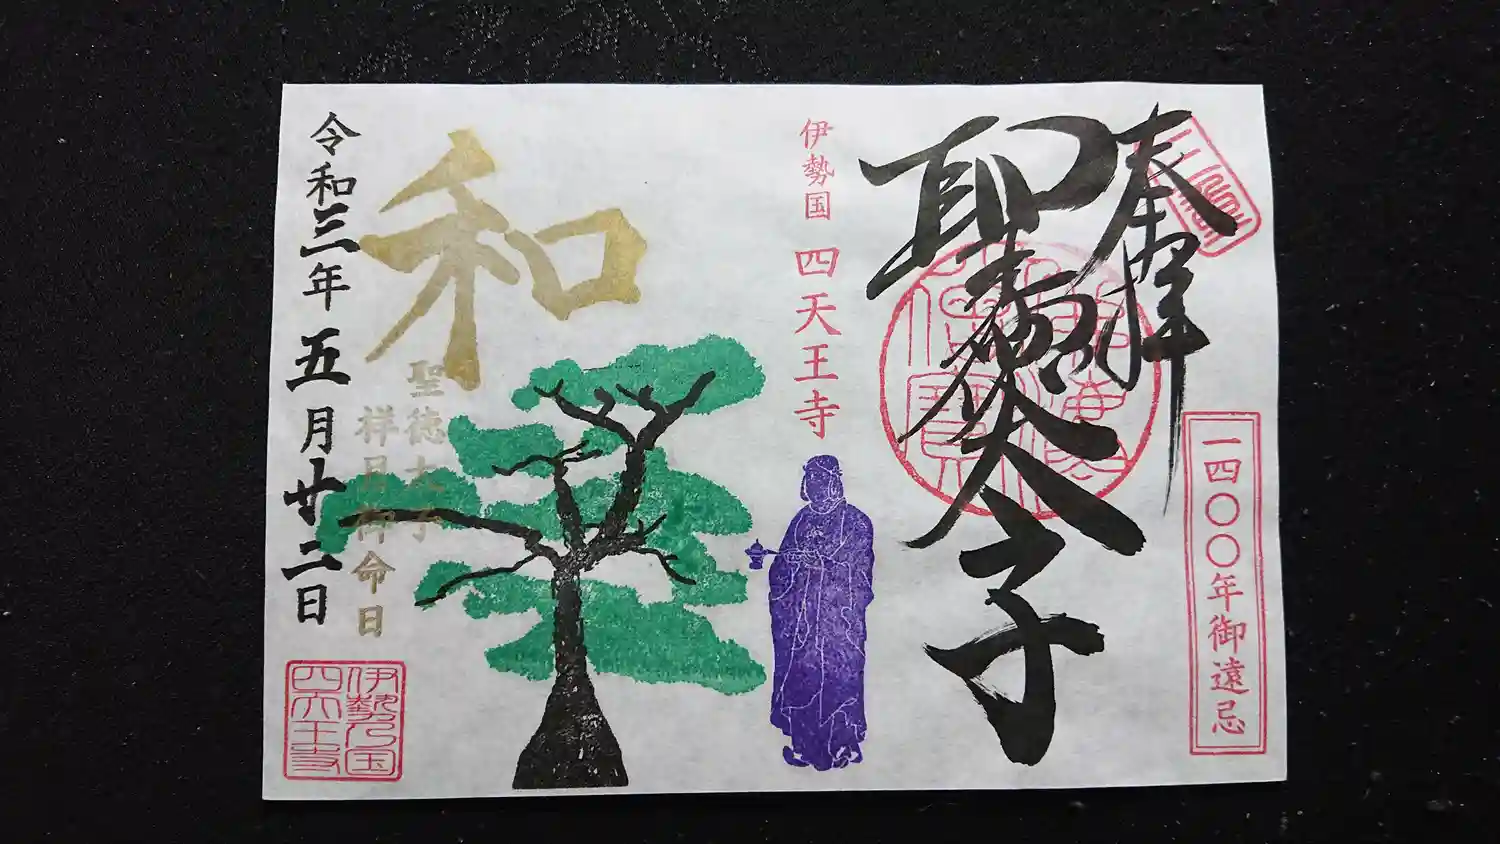 奉拝
聖徳太子
一四〇〇年御遠忌
伊勢国 四天王寺
和
聖徳太子
祥月御命日
令和三年五月廿二日
伊勢乃国
四天王寺